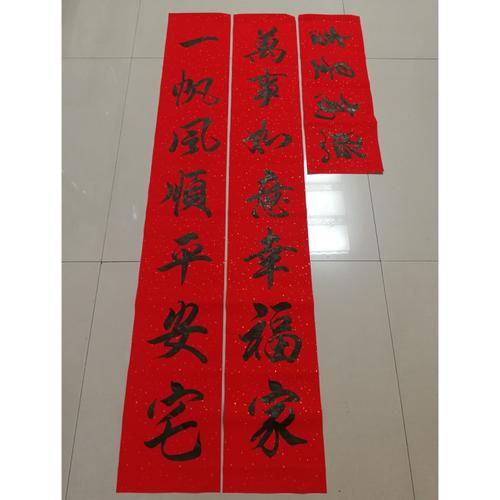 一帆風順平安宅
萬事如意幸福家
吉星高照